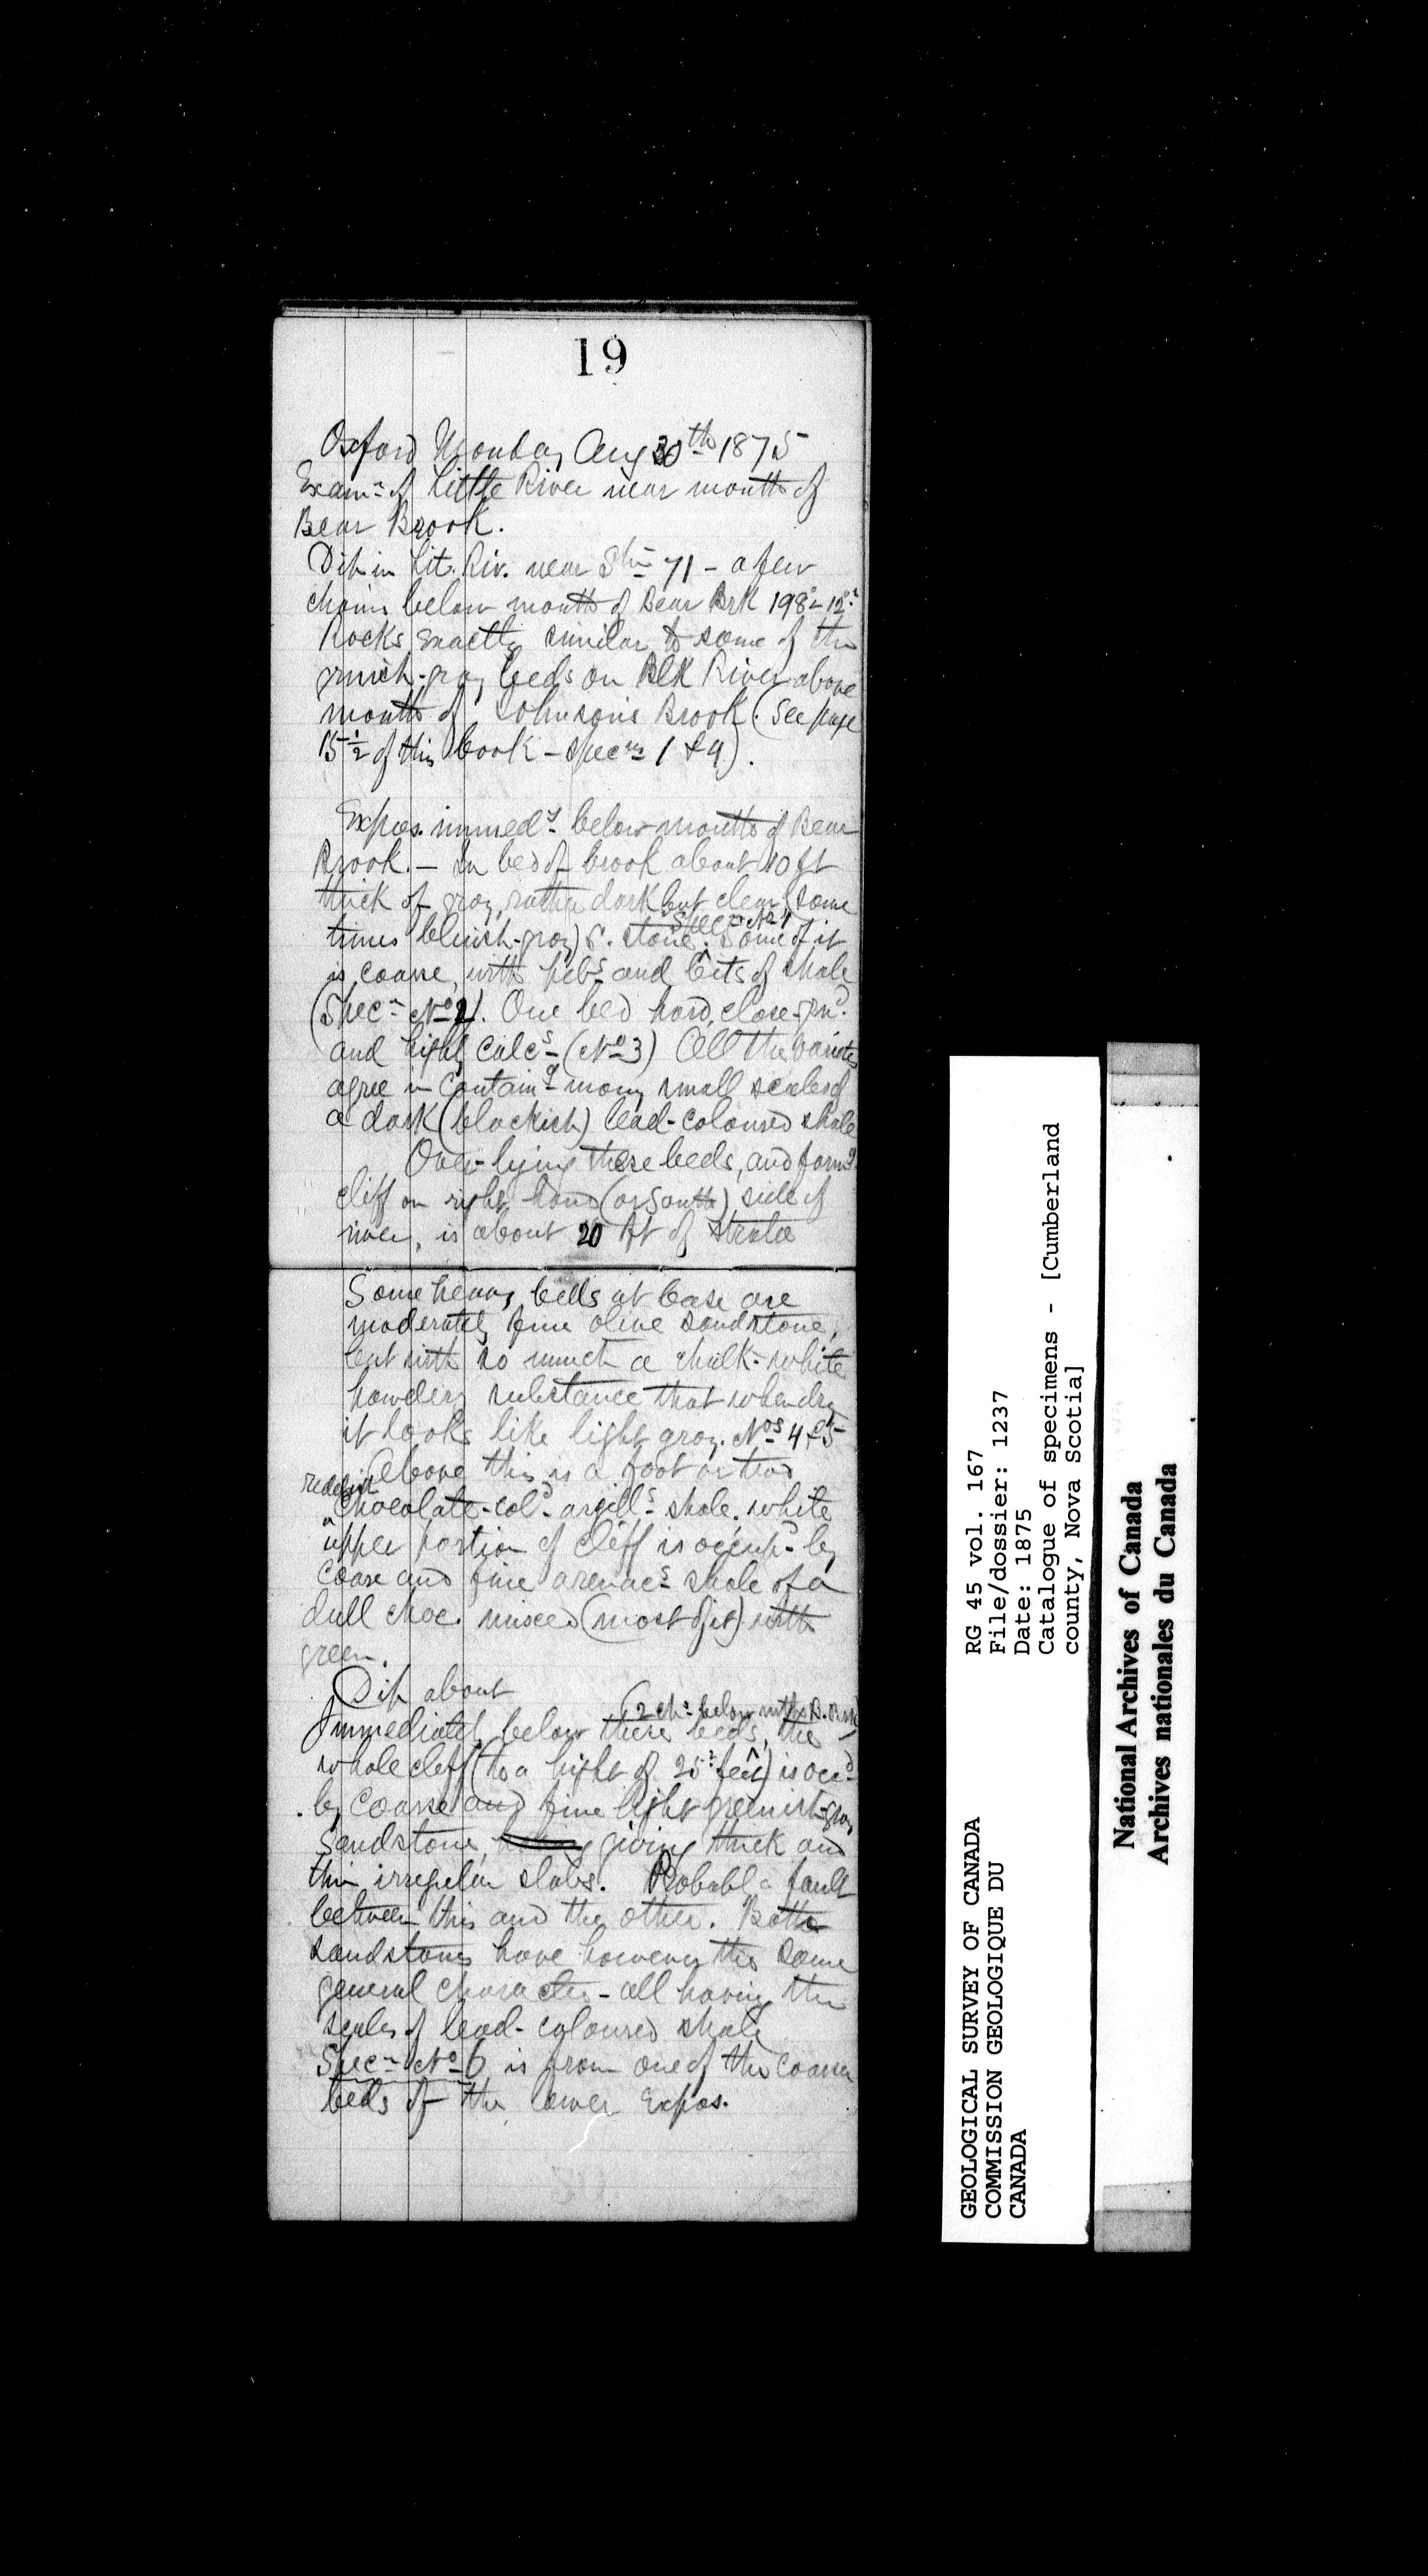 19
Oxford Monday Aug 30th 1875
Examn of Little River near mouth of
Bear Brook.
Dip in Lit. Riv. near Stn 71 - a few
chains below mouth of Bear Brk 198°-12°
Rocks exactly similar to some of the
grnish-gray beds on Blk River above
mouth of Johnson's Brook. (See page
15½ of this book - specns 1 & 9).
Expos. immedy below mouth of Bear
Brook. - In bed of brook about 10 ft
thick of gray, rather dark but clear, (some
Specn No 1
times bluish-gray) s. stone. Some of it
is coarse, with pebs and bits of shale
(Specn No 2). One bed hard, close-grnd
and highly calcs (No 3) All the varieties
agree in containg many small scales of
a dark (blackish) lead-coloured shale
Over-lying these beds, and formg
cliff on right hand (or South) side of
river, is about 20 ft of strata
Some heavy beds at base are
moderately fine olive sandstone,
but with so much a chalk-white
powdery substance that when dry
it looks like light gray. Nos 4 & 5
Above this is a foot or two
reddish
chocolate-cold argills shale. white
upper portion of cliff is occupd by
coarse and fine arenacs shale of a
dull choc. mixed (most of it) with
green.
Dip about
(2 chs below mth of B. Brk)
Immediately below these beds, the
whole cliff (to a hight of 25 feet) is occd
by coarse and fine light greenish-gray
Sandstone, giving thick and
thin irregular slabs. Probabl a fault
between this and the other. Both
sandstones have however the same
general character - all having the
scales of lead-coloured shale
Specn No 6 is from one of the coarser
beds of the lower expos.
GEOLOGICAL SURVEY OF CANADA
COMMISSION GEOLOGIQUE DU
CANADA
RG 45 vol. 167
File/dossier: 1237
Date: 1875
Catalogue of specimens - [Cumberland
county, Nova Scotia]
National Archives of Canada
Archives nationales du Canada